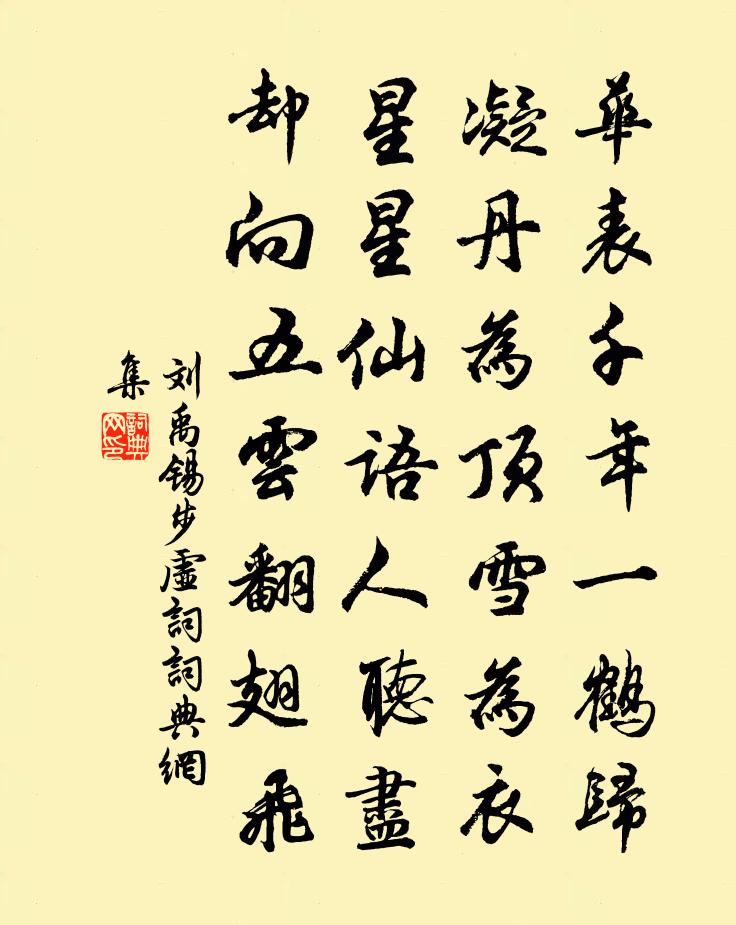 華表千年一鶴歸
凝丹為頂雪為衣
星星仙語人聽盡
却向五雲翻翅飛
刘禹锡步虛詞詞典網
集
詞典网印